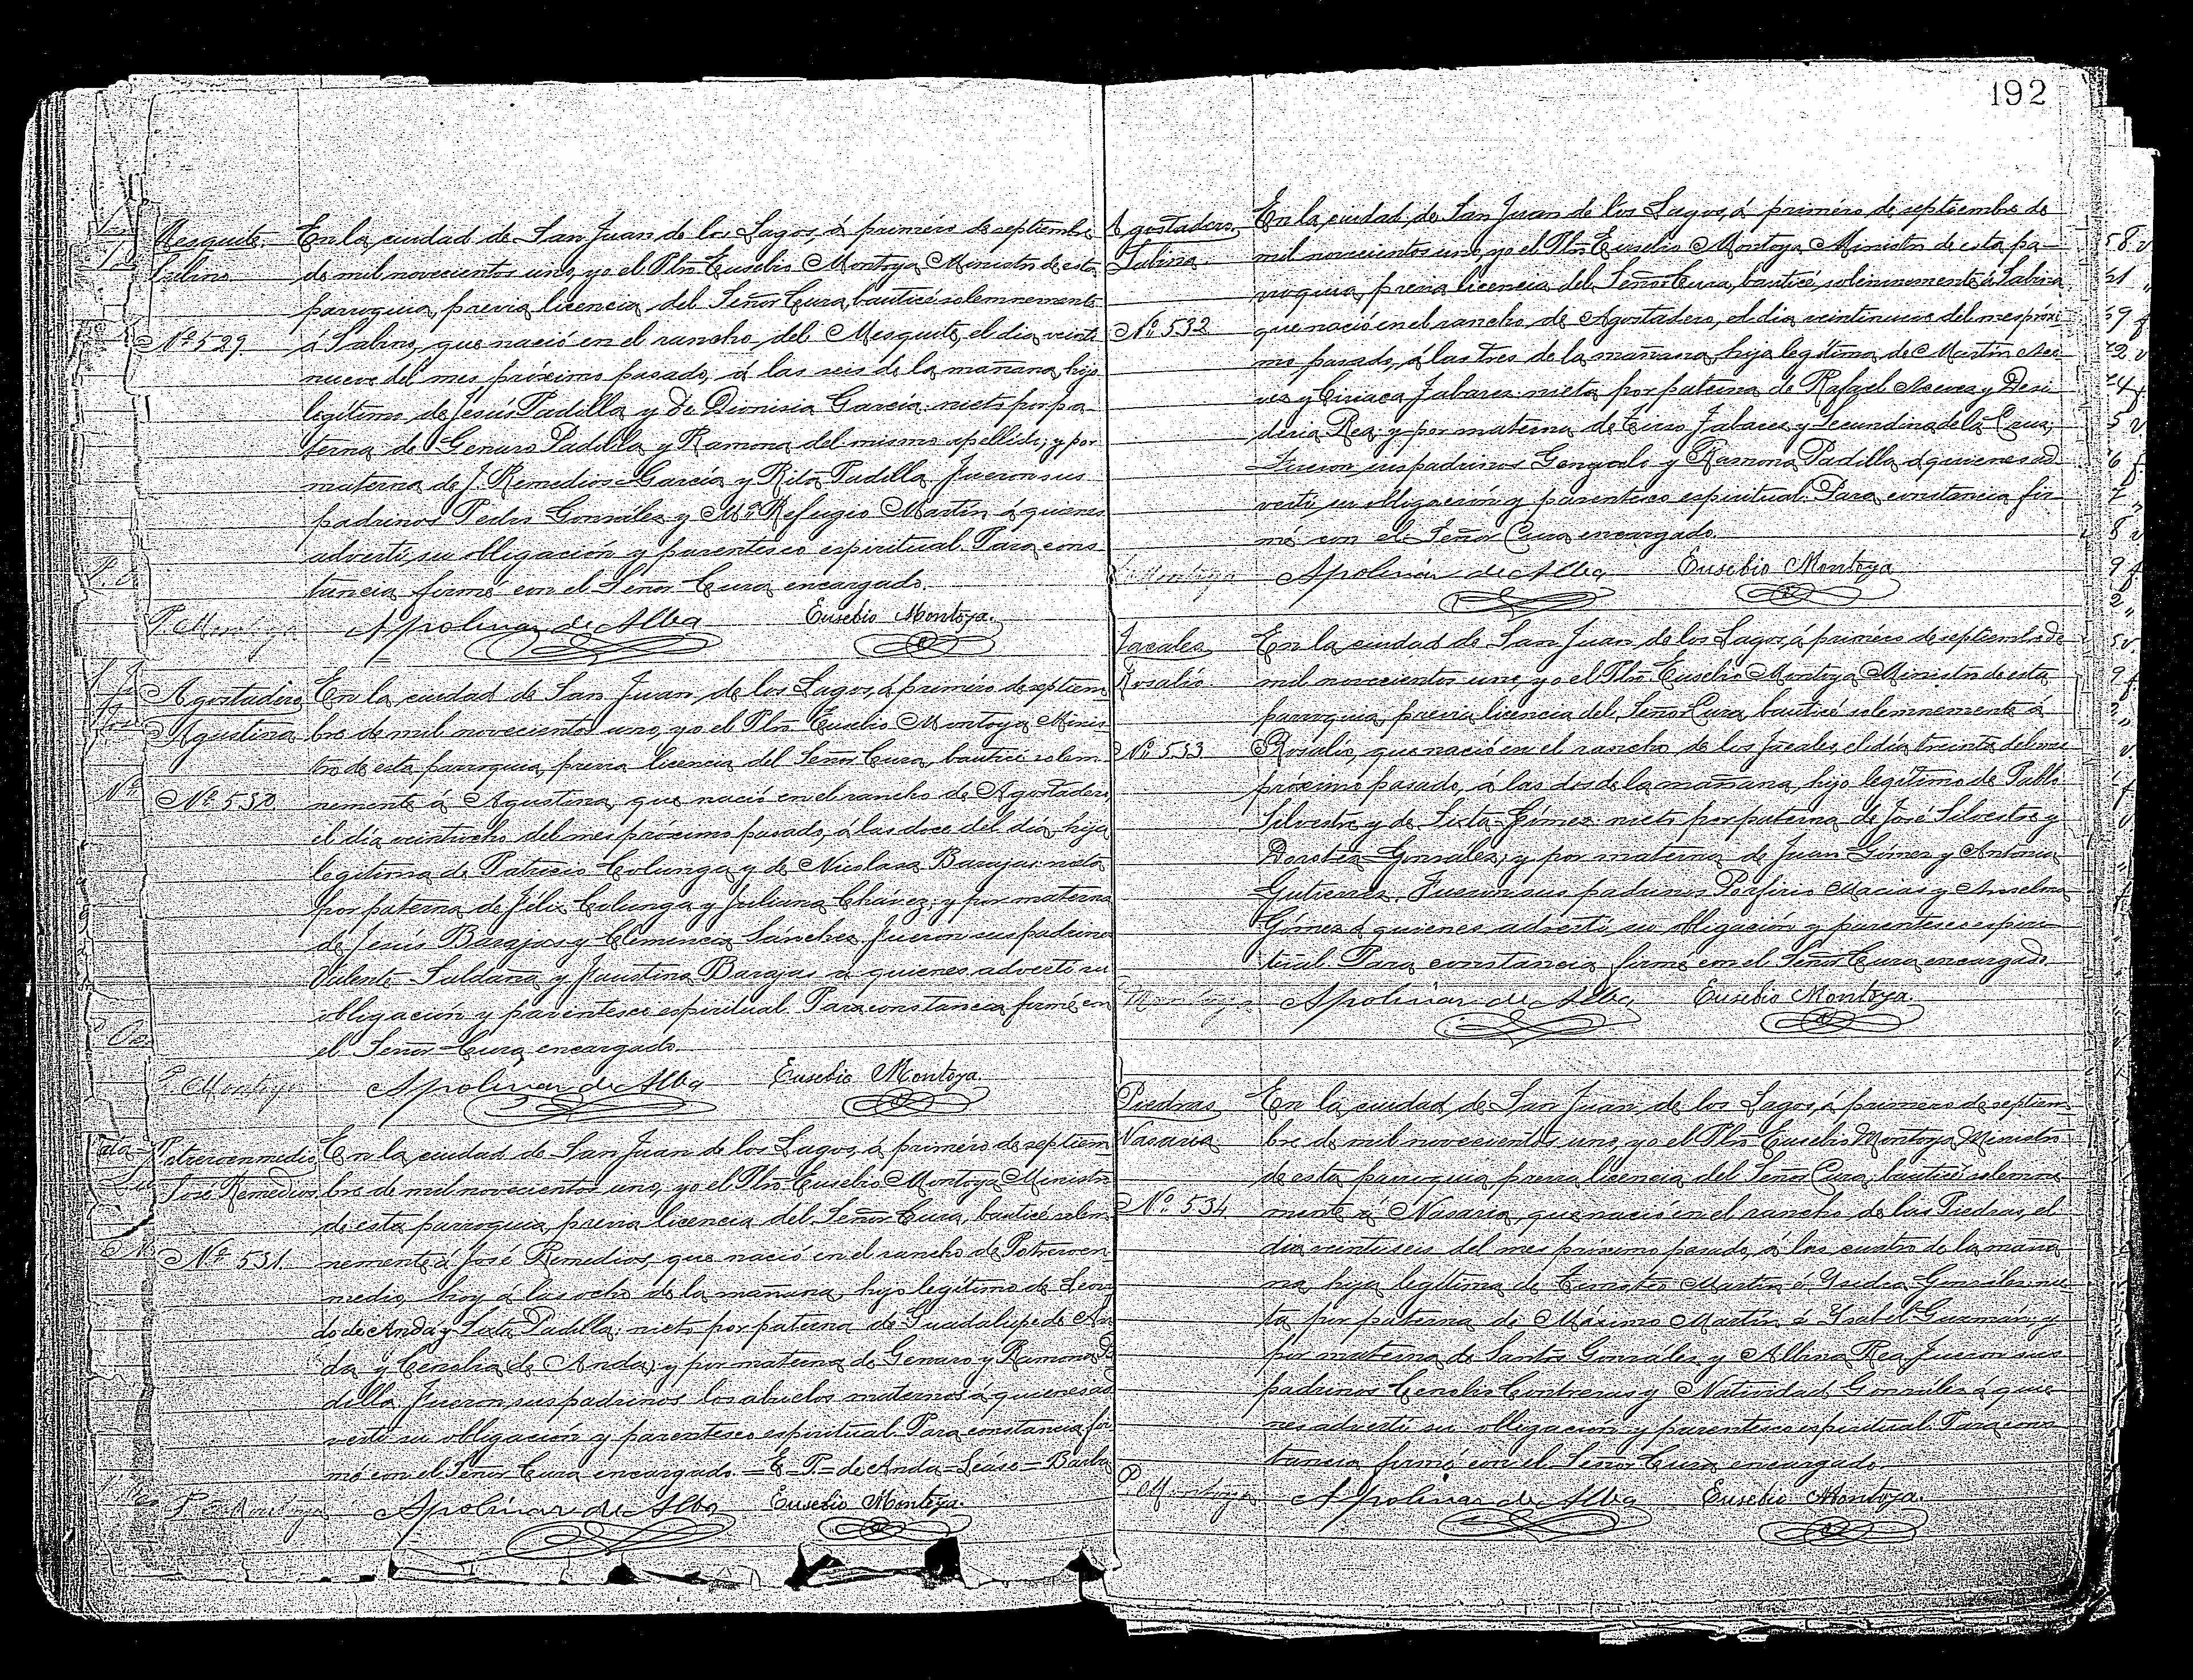 192
Mesquite.
Sabino
Nº 529
En la ciudad de San Juan de los Lagos, á primero de septiembre
de mil novecientos uno, yo el Pbro. Eusebio Montoya Ministro de esta
parroquia, previa licencia del Señor Cura, bauticé solemnemente
á Sabino, que nació en el rancho del Mesquite, el dia veinti
nueve del mes próximo pasado, á las seis de la mañana, hijo
legítimo de Jesús Padilla y de Dionisia García: nieto por pa-
terna de Genaro Padilla y Ramona del mismo apellido; y por
materna de J. Remedios García y Rita Padilla. Fueron sus
padrinos Pedro González y Mª Refugio Martín á quienes
advertí su obligación y parentesco espiritual. Para cons-
tancia firmé con el Señor Cura encargado.
P. Montoya
Apolinar de Alba
Eusebio Montoya.
Agostadero
Agustina
Nº 530
En la ciudad de San Juan de los Lagos, á primero de septiem
bre de mil novecientos uno, yo el Pbro. Eusebio Montoya Minis-
tro de esta parroquia, previa licencia del Señor Cura, bauticé solem-
nemente á Agustina, que nació en el rancho de Agostadero,
el día veintiocho del mes próximo pasado, á las doce del día, hija
legítima de Patricio Colunga y de Nicolasa Barajas: nieta
por paterna de Félix Colunga y Juliana Chávez; y por materna
de Jesús Barajas y Clemencia Sánchez. Fueron sus padrinos
Valente Saldaña y Faustina Barajas á quienes advertí su
obligación y parentesco espiritual. Para constancia firmé con
el Señor Cura encargado.
P. Montoya
Apolinar de Alba
Eusebio Montoya.
Potreroenmedio
José Remedios
Nº 531.
En la ciudad de San Juan de los Lagos, á primero de septiem
bre de mil novecientos uno, yo el Pbro. Eusebio Montoya Ministro
de esta parroquia, previa licencia del Señor Cura, bauticé solem-
nemente á José Remedios, que nació en el rancho de Potreroen-
medio, hoy á las ocho de la mañana, hijo legítimo de
do de Anda y Sixta Padilla; nieto por paterna de Guadalupe de An
da y Cenobia de Anda; y por materna de Genaro y Ramona Pa
dilla. Fueron sus padrinos los abuelos maternos á quienes ad
vertí su obligación y parentesco espiritual. Para constancia fir
mé con el Señor Cura encargado. =E=P.= de Anda = Léase = Barba
P. Montoya
Apolinar de Alba
Eusebio Montoya.
Agostadero.
Sabina.
Nº 532
En la ciudad de San Juan de los Lagos, á primero de septiembre de
mil novecientos uno, yo el Pbro. Eusebio Montoya Ministro de esta pa-
rroquia, previa licencia del Señor Cura, bauticé solemnemente á Sabina,
que nació en el rancho de Agostadero, el día veintinueve del mes próxi-
mo pasado, á las tres de la mañana, hija legítima de Martín
y Ciriaca Tabares: nieta por paterna de Rafael y Desi
deria Rea; y por materna de Tirso Tabares y Secundina de la Cruz;
Fueron sus padrinos Gonzalo y Ramona Padilla á quienes ad
vertí su obligación y parentesco espiritual. Para constancia fir-
mé con el Señor Cura encargado.
P. Montoya
Apolinar de Alba
Eusebio Montoya
Jacales
Rosalío.
Nº 533
En la ciudad de San Juan de los Lagos, á primero de septiembre de
mil novecientos uno, yo el Pbro. Eusebio Montoya Ministro de esta
parroquia, previa licencia del Señor Cura bauticé solemnemente á
Rosalío, que nació en el rancho de los Jacales, el día treinta del mes
próximo pasado, á las dos de la mañana, hijo legítimo de Pablo
Silvestre y de Sixta Gómez: nieto por paterna de José Silvestre y
Dorotea González; y por materna de Juan Gómez y Antonia
Gutierrez. Fueron sus padrinos Porfirio Macias y Anselma
Gómez á quienes advertí su obligación y parentesco espiri-
tual. Para constancia firmé con el Señor Cura encargado
Montoya
Apolinar de Alba
Eusebio Montoya.
Piedras
Nasaria.
Nº 534
En la ciudad de San Juan de los Lagos, á primero de septiem-
bre de mil novecientos uno, yo el Pbro. Eusebio Montoya Ministro
de esta parroquia, previa licencia del Señor Cura, bauticé solemne
mente á Nasaria, que nació en el rancho de las Piedras, el
día veintiseis del mes próximo pasado, á las cuatro de la maña
na, hija legítima de Martín é Ysidra González: nie
ta por paterna de Máximo Martín é Ysabel Guzmán; y
por materna de Santos González y Albina Rea. Fueron sus
padrinos Cenobio Contreras y Natividad González á quie
nes advertí su obligación y parentesco espiritual. Para cons
tancia firmé con el Señor Cura encargado.
P. Montoya
Apolinar de Alba
Eusebio Montoya.